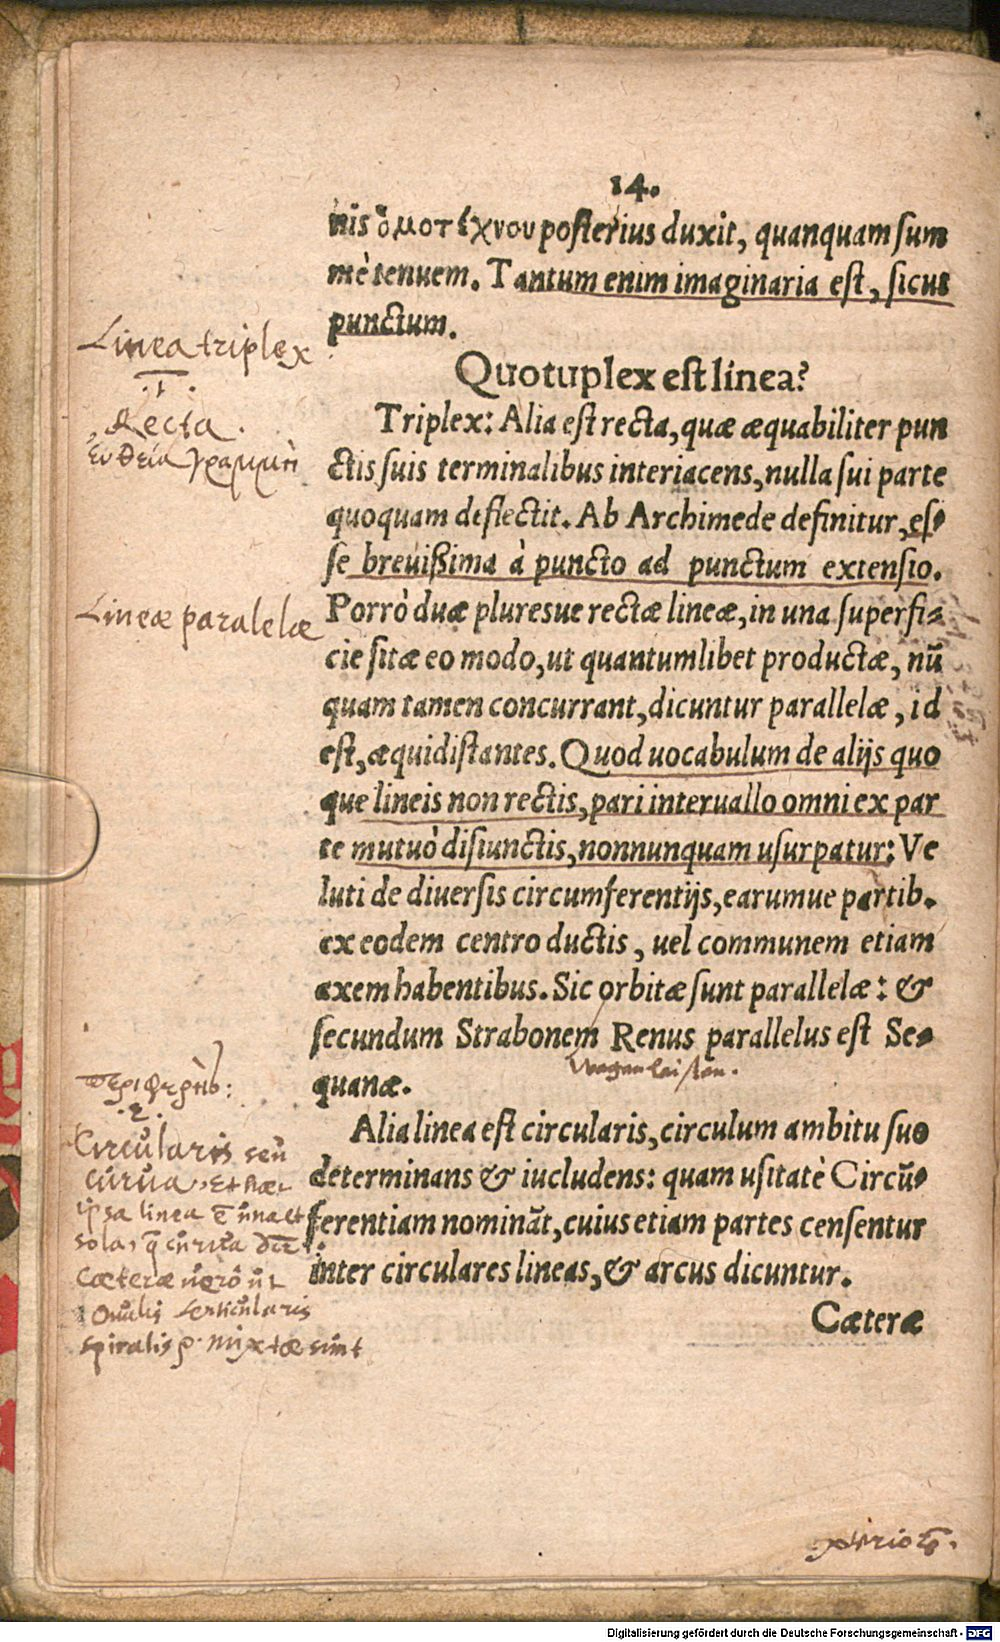 14.
nis ὁμοτέχνου posterius duxit, quanquam sum
mè tenuem. Tantum enim imaginaria est, sicut
punctum.
Quotuplex est linea?
Linea triplex
.1.
Recta.
ευθεία γραμμὴ
Triplex: Alia est recta, quæ æquabiliter pun
ctis suis terminalibus interiacens, nulla sui parte
quoquam deflectit. Ab Archimede definitur, es-
se breuißima à puncto ad punctum extensio.
Lineæ paralelæ
Porrò duæ pluresue rectæ lineæ, in una superfi-
cie sitæ eo modo, ut quantumlibet productæ, nũ
quam tamen concurrant, dicuntur parallelæ, id
est, æquidistantes. Quod uocabulum de alijs quo
que lineis non rectis, pari interuallo omni ex par
te mutuò disiunctis, nonnunquam usurpatur: Ve
luti de diuersis circumferentijs, earumue partib.
ex eodem centro ductis, uel communem etiam
axem habentibus. Sic orbitæ sunt parallelæ: &
secundum Strabonem Renus parallelus est Se-
quanæ.
.2.
Circularis seu
curua. Et hæc
ipsa linea ẽ una et
sola, q̃ curua
Cæteræ uerò ut
Oualis lenticularis
spiralis mixtæ sunt
Alia linea est circularis, circulum ambitu suo
determinans & iucludens: quam usitatè Circũ-
ferentiam nominãt, cuius etiam partes censentur
inter circulares lineas, & arcus dicuntur.
Cæteræ
Digitalisierung gefördert durch die Deutsche Forschungsgemeinschaft - DFG